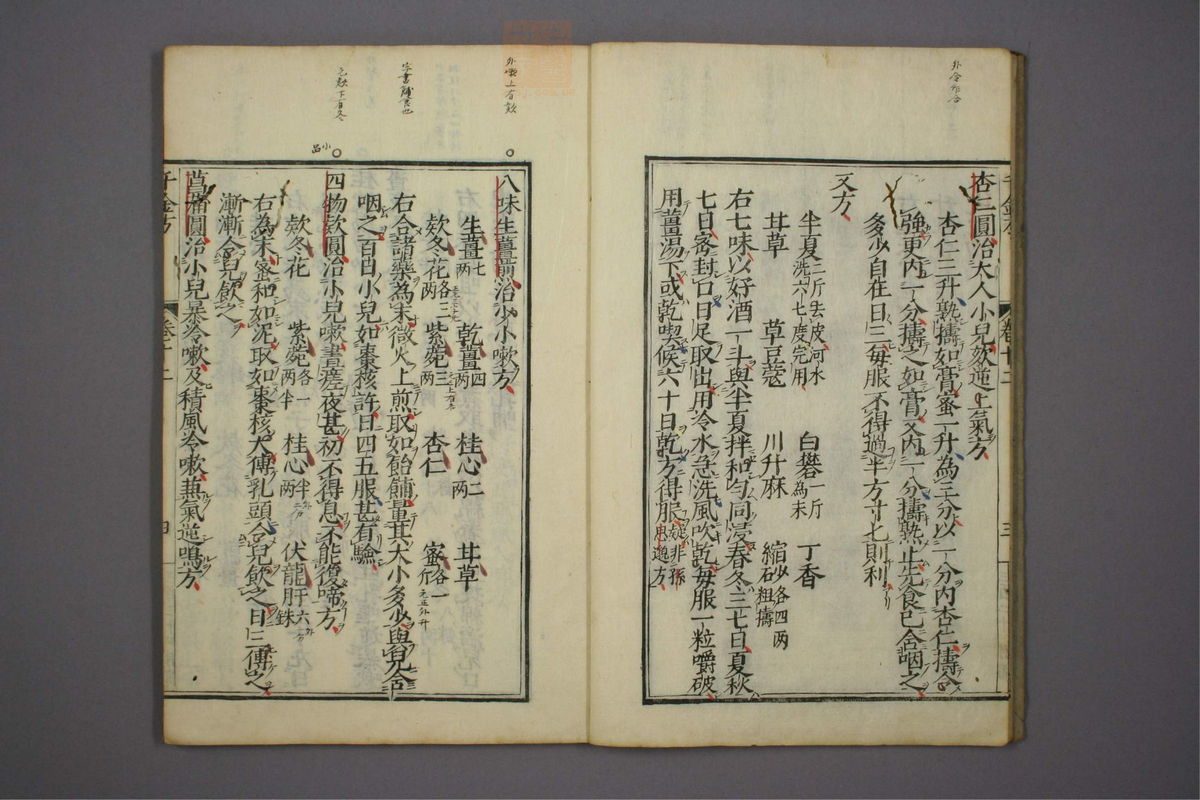 杏仁圓治大人小兒欬逆上氣方
杏仁三升熟擣如膏蜜一升為三分以一分內杏仁擣令
強更內一分擣之如膏又內一分擣熟止先食已含咽之
多少自在日三每服不得過半方寸匕則利
又方
半夏二斤去皮河水洗六七度完用 白礬一斤為末 丁香
甘草 草豆蔻 川升麻 縮砂各四兩粗擣
右七味以好酒一斗與半夏拌和勻同浸春冬三七日夏秋
七日密封口日足取出用冷水急洗風吹乾每服一粒嚼破
用薑湯下或乾喫候六十日乾方得服疑非孫思邈方
八味生薑煎治少小嗽方
生薑七兩 乾薑四兩 桂心二兩 甘草
欵冬花各三兩 紫菀三兩 杏仁 蜜各一斤
右合諸藥為末微火上煎取如飴餔量其大小多少與兒含
咽之百日小兒如棗核許日四五服甚有驗
四物欵圓治小兒嗽晝瘥夜甚初不得息不能復啼方
欵冬花 紫菀各一兩半 桂心半兩 伏龍肝六銖
右為末蜜和如泥取如棗核大傅乳頭令兒飲之日三傅之
漸漸令兒飲之
菖蒲圓治小兒暴冷嗽及積風冷嗽兼氣逆鳴方
千金方 卷十二 四